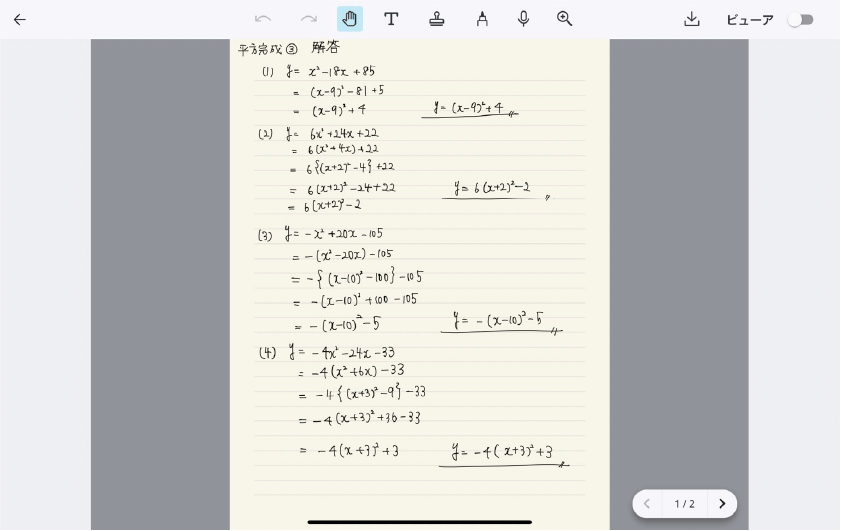 ビューア
平方完成③ 解答
(1) y= x²-18x+85
= (x-9)²-81+5
= (x-9)²+4 y=(x-9)²+4
(2) y= 6x²+24x+22
= 6(x²+4x)+22
= 6{(x+2)²-4}+22
= 6(x+2)²-24+22 y=6(x+2)²-2
= 6(x+2)²-2
(3) y= -x²+20x-105
= -(x²-20x)-105
= -{(x-10)²-100}-105
= -(x-10)²+100-105
= -(x-10)²-5 y= -(x-10)²-5
(4) y= -4x²-24x-33
= -4(x²+6x)-33
= -4{(x+3)²-9}-33
= -4(x+3)²+36-33
= -4(x+3)²+3 y= -4(x+3)²+3
1 / 2